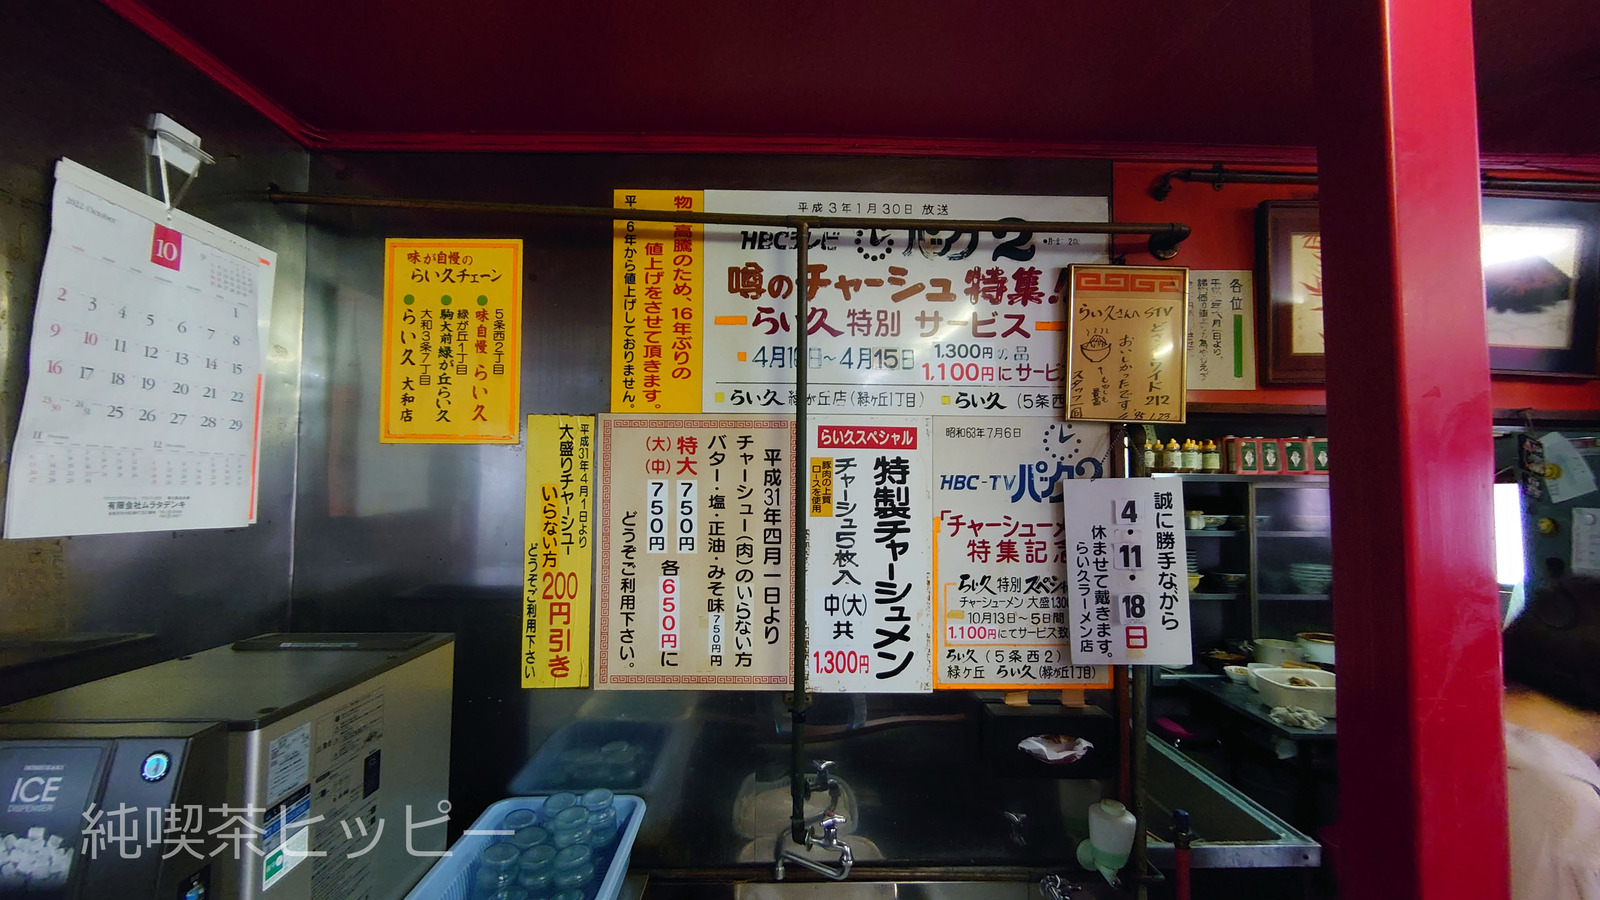 2022 October
10
1
2 3 4 5 6 7 8
9 10 11 12 13 14 15
16 17 18 19 20 21 22
25 26 27 28 29
11
12
有限会社ムラタデンキ
味が自慢の
らい久チェーン
5条西2丁目
味自慢 らい久
緑が丘1丁目
駒大前緑が丘らい久
大和3条7丁目
らい久 大和店
高騰のため、16年ぶりの
値上げをさせて頂きます。
6年から値上げしておりません。
平成3年1月30日 放送
HBCテレビ パック2
噂のチャーシュ特集!
らい久特別 サービス
4月1 日~4月15日
1,300円の品
1,100円にサービ
らい久 緑が丘店(緑ヶ丘1丁目)
らい久 (5条西
らい久さんへ STV
どさんこワイド212
おいしかったです
スタッフ一同
'95.1.23
各位
平成31年4月1日より
大盛りチャーシュー
いらない方 200円引き
どうぞご利用下さい
平成31年四月一日より
チャーシュー(肉)のいらない方
バター・塩・正油・みそ味 750円
特大 750円
(大)(中) 750円
各650円に
どうぞご利用下さい。
らい久スペシャル
特製チャーシュメン
チャーシュ5枚入
豚肉の上質
ロースを使用
中(大)共
1,300円
昭和63年7月6日
HBC-TVパック2
「チャーシューメ
特集記念
らい久 特別 スペシャ
チャーシューメン 大盛1,30
10月13日~5日間
1,100円にてサービス致
らい久 (5条西2)
緑ヶ丘 らい久(緑が丘1丁目)
誠に勝手ながら
4・11・18日
休ませて戴きます。
らい久ラーメン店
ICE
DISPENSER
純喫茶ヒッピー